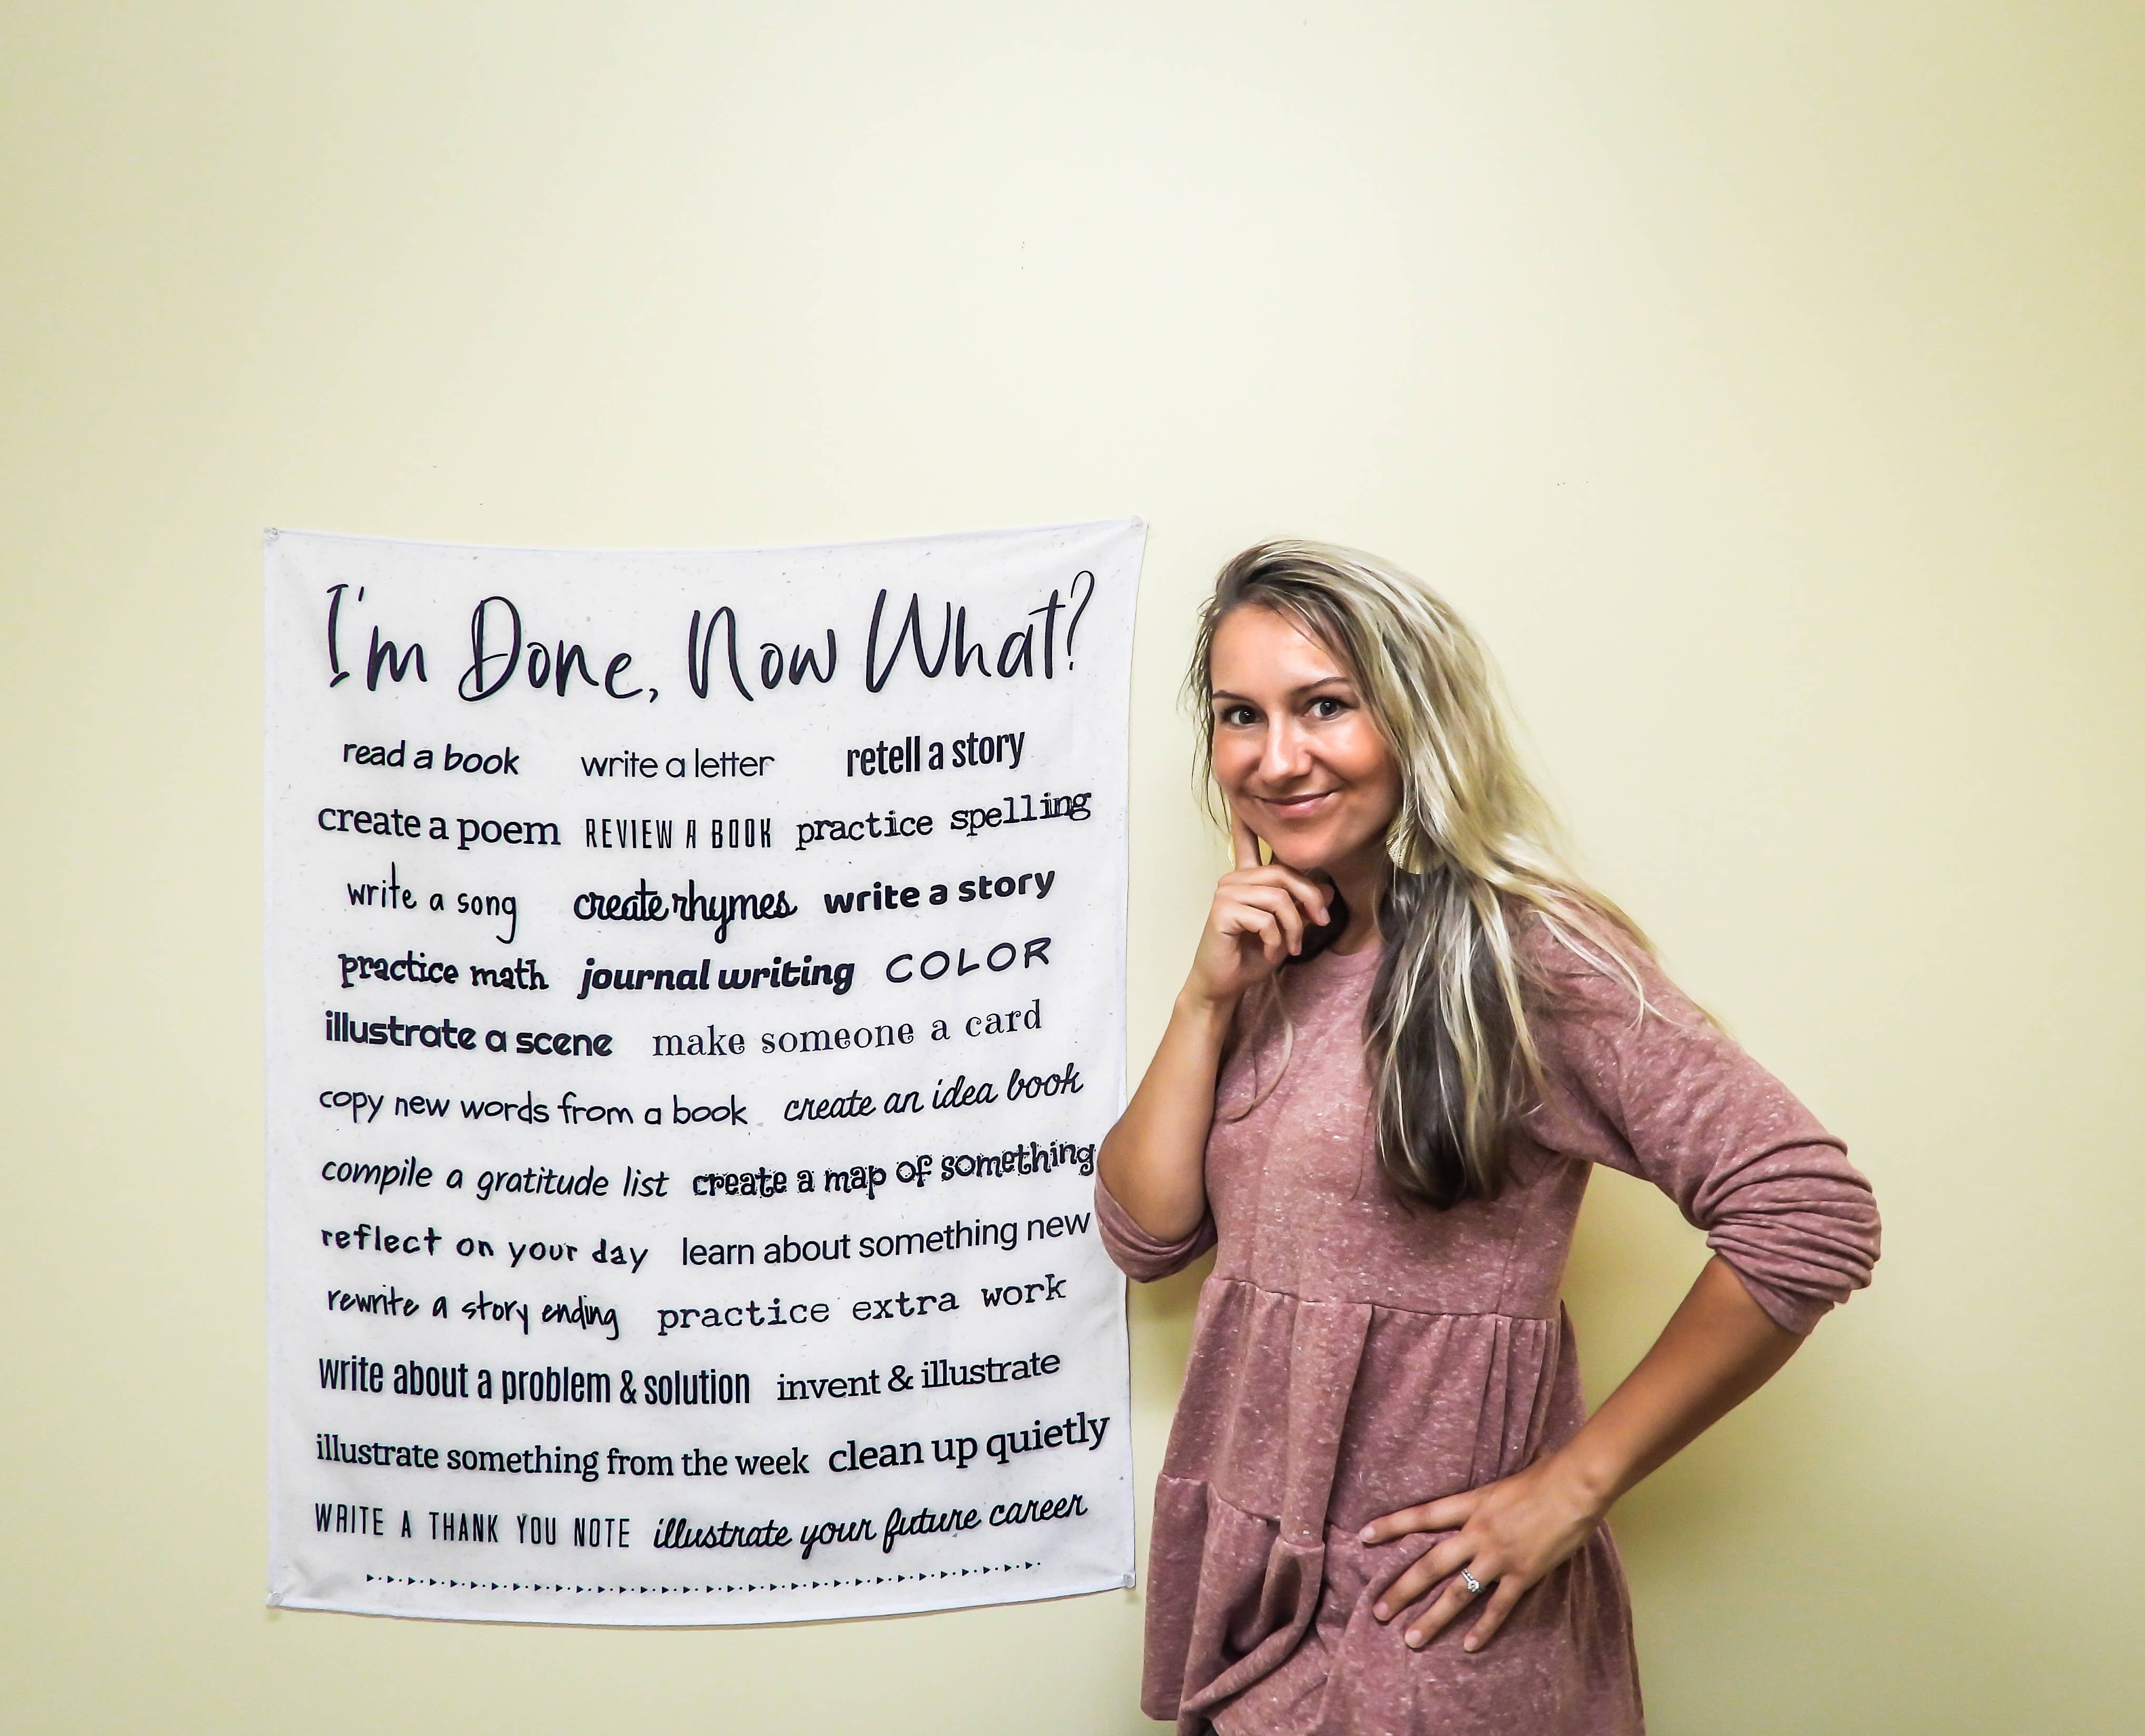 I'm Done, Now What?
read a book write a letter retell a story
create a poem REVIEW A BOOK practice spelling
write a song create rhymes write a story
practice math journal writing COLOR
illustrate a scene make someone a card
copy new words from a book create an idea book
compile a gratitude list create a map of something
reflect on your day learn about something new
rewrite a story ending practice extra work
write about a problem & solution invent & illustrate
illustrate something from the week clean up quietly
WRITE A THANK YOU NOTE illustrate your future career